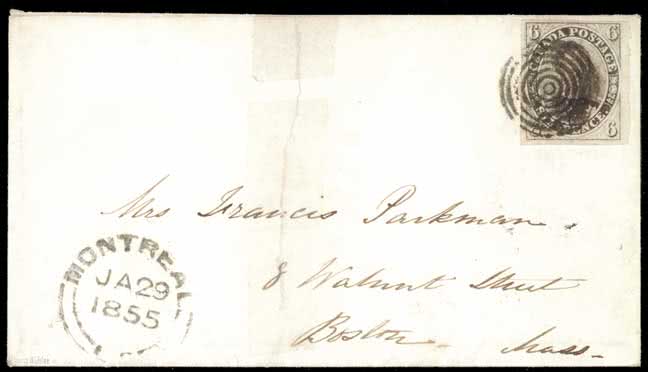 6 CANADA POSTAGE 6
PENCE.
6
Mrs Francis Parkman.
8 Walnut Street
Boston Mass-
MONTREAL
JA 29
1855